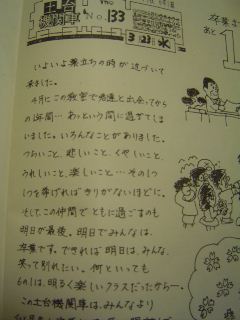 土台
機関車
No.133
3月23日(水)
卒業
あと
1
いよいよ巣立ちの時が近づいて
来ました。
4月にこの教室で君達と出会ってから
の1年間…あっという間に過ぎてしま
いました。いろんなことがありました。
つらいこと、悲しいこと、くやしいこと、
うれしいこと、楽しいこと…その1つ
1つを挙げればきりがないほどに。
そして、この仲間でともに過ごすのも
明日が最後。明日でみんなは、
卒業です。できれば明日は、みんな、
笑って別れたい。何といっても
6の1は、明るく楽しいクラスだったから…。
この土台機関車は、みんなより